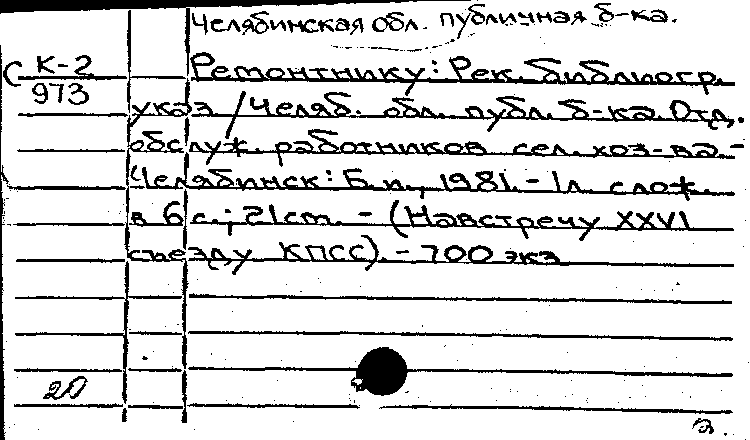 Челябинская обл. публичная б-ка.
С К-2
973
Ремонтнику: Рек. библиогр.
указ / Челяб. обл. публ. б-ка. Отд.
обслуж. работников сел. хоз-ва. -
Челябинск: Б. и., 1981. - 1 л. слож.
в 6 с.; 21 cm. - (Навстречу XXVI
съезду КПСС). - 700 экз
20